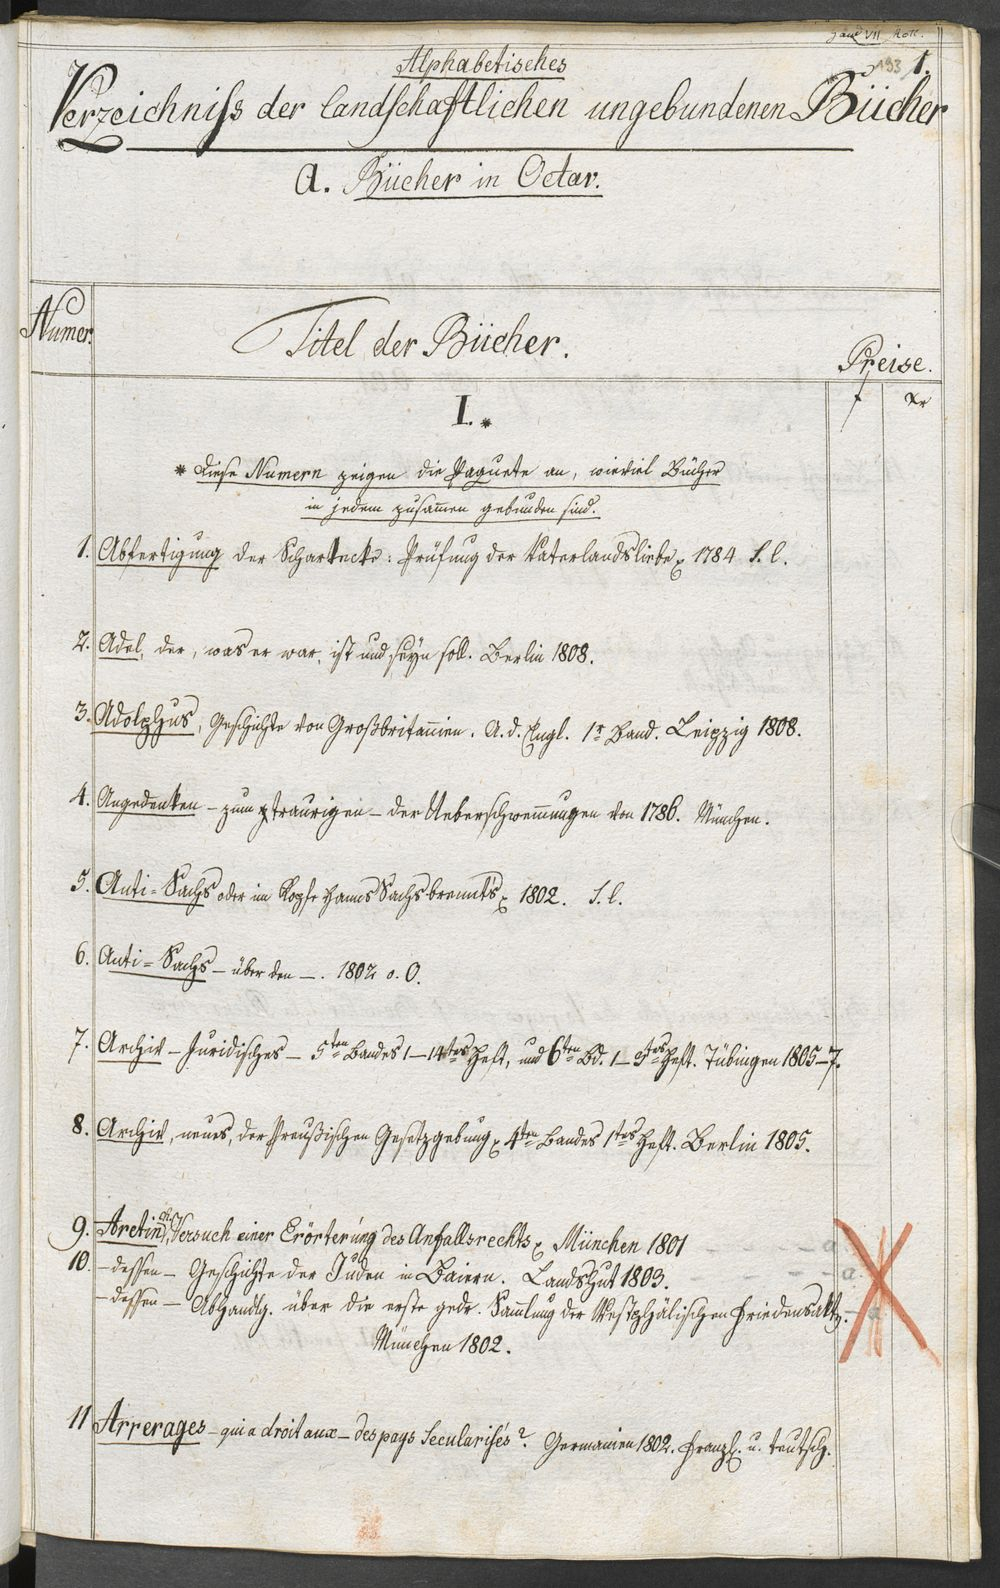 193 1.
Alphabetisches
Verzeichniſs der landſchaftlichen ungebundenen Bücher
A. Bücher in Octav.
Numer.
Titel der Bücher.
Preise.
f xr
I. *
* Diese Numern zeigen die Paquete an, wieviel Bücher
in jedem zusam̄en gebunden sind.
1. Abfertigung der Scharteke: Prüfung der Vaterlandsliebe 1784 S. l.
2. Adel, der, was er war, ist und seyn soll. Berlin 1808.
3. Adolphus, Geschichte von Großbritan̄ien. A. d. Engl. 1r Band. Leipzig 1808.
4. Angedenken – zum traurigen – der Ueberschwem̄ungen von 1786. München.
5. Anti-Sachs oder im Kopfe Hanns Sachs brennts 1802. S. l.
6. Anti-Sachs – über den –. 1802 o. O.
7. Archiv – Juridisches – 5ten Bandes 1–14tes Heft, und 6ten Bd. 1– Heft. Tübingen 1805–7.
8. Archiv, neues, der Preußischen Gesetzgebung 4ten Bandes 1tes Heft. Berlin 1805.
9. Aretin, Versuch einer Erörterung des Anfallsrechts München 1801
10. – dessen – Geschichte der Juden in Baiern. Landshut 1803.
– dessen – Abhandlg. über die erste gedr. Sam̄lung der Westphälischen Friedensakt.
München 1802.
11 Arrerages – qui a droit aux – des pays Secularisés? Germanien 1802. Franzs. u. teutsch.